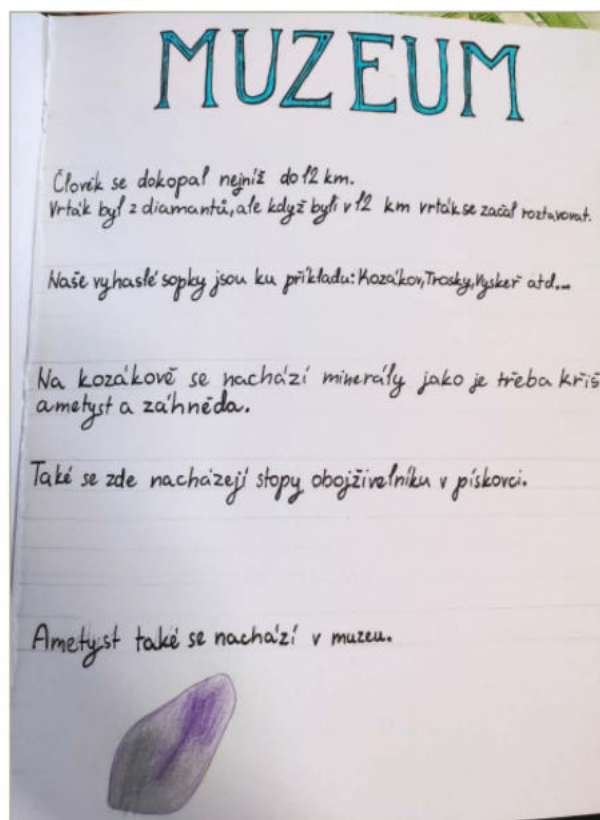 MUZEUM
Člověk se dokopal nejníž do 12 km.
Vrták byl z diamantů, ale když byli v 12 km vrták se začal roztavovat.
Naše vyhaslé sopky jsou ku příkladu: Kozákov, Trosky, Vyskeř atd...
Na kozákově se nachází minerály jako je třeba křiš
ametyst a záhněda.
Také se zde nacházejí stopy obojživelníku v pískovci.
Ametyst také se nachází v muzeu.